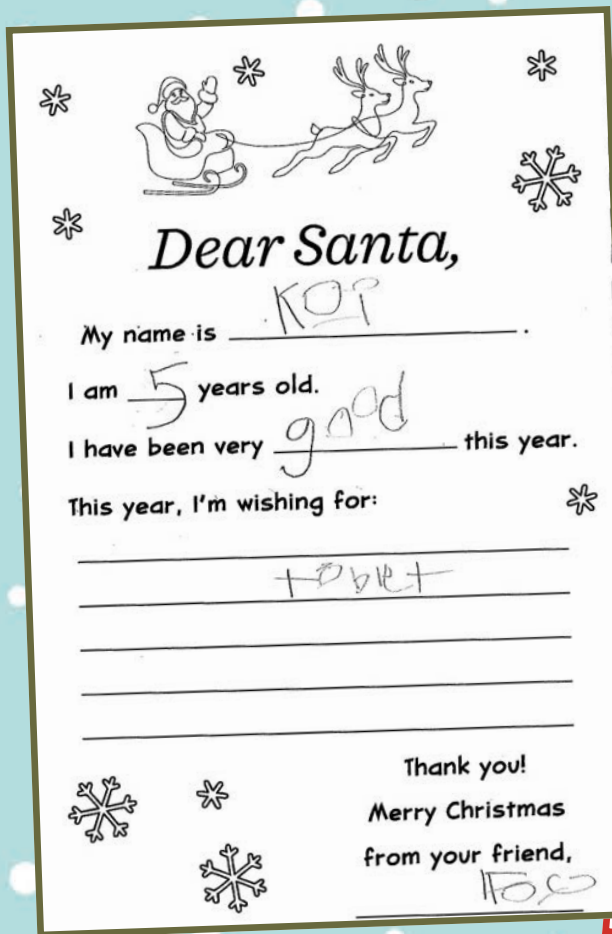 Dear Santa,
My name is Koi.
I am 5 years old.
I have been very good this year.
This year, I'm wishing for:
tablet
Thank you!
Merry Christmas
from your friend,